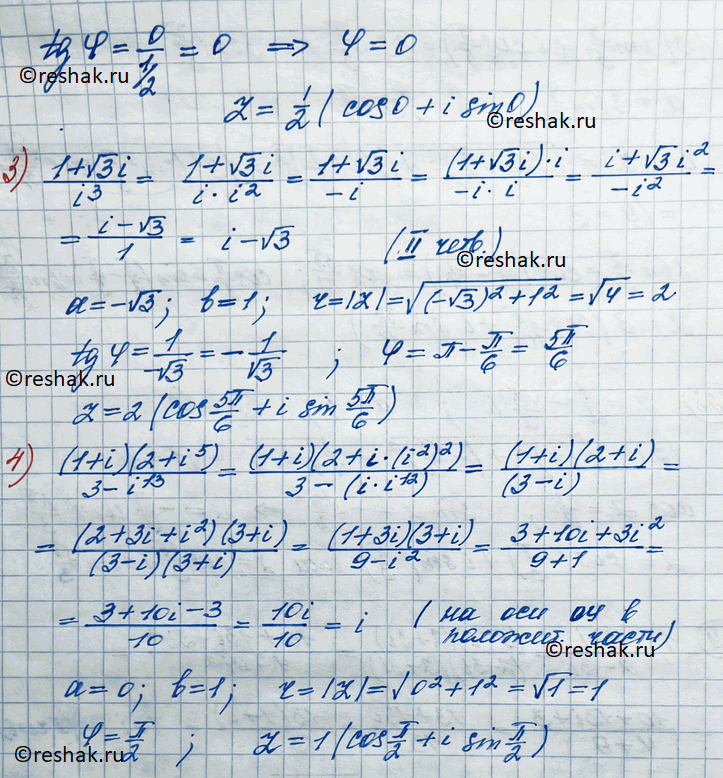 tg φ = 0/(1/2) = 0 ⟹ φ = 0
©reshak.ru
z = 1/2 (cos 0 + i sin 0)
©reshak.ru
3) (1+√3i)/i³ = (1+√3i)/(i·i²) = (1+√3i)/(-i) = ((1+√3i)·i)/(-i·i) = (i+√3i²)/(-i²) =
= (i-√3)/1 = i-√3 (II четв.)
©reshak.ru
a = -√3; b = 1; r = |z| = √((-√3)²+1²) = √4 = 2
tg φ = 1/(-√3) = -1/√3 ; φ = π - π/6 = 5π/6
©reshak.ru
z = 2 (cos 5π/6 + i sin 5π/6)
©reshak.ru
4) ((1+i)(2+i⁵))/(3-i¹³) = ((1+i)(2+i·(i²)²))/(3-(i·i¹²)) = ((1+i)(2+i))/(3-i) =
= ((2+3i+i²)(3+i))/((3-i)(3+i)) = ((1+3i)(3+i))/(9-i²) = (3+10i+3i²)/(9+1) =
©reshak.ru
= (3+10i-3)/10 = 10i/10 = i (на оси oy в
положит. части)
©reshak.ru
a = 0; b = 1; r = |z| = √(0²+1²) = √1 = 1
©reshak.ru
φ = π/2 ; z = 1 (cos π/2 + i sin π/2)
©reshak.ru